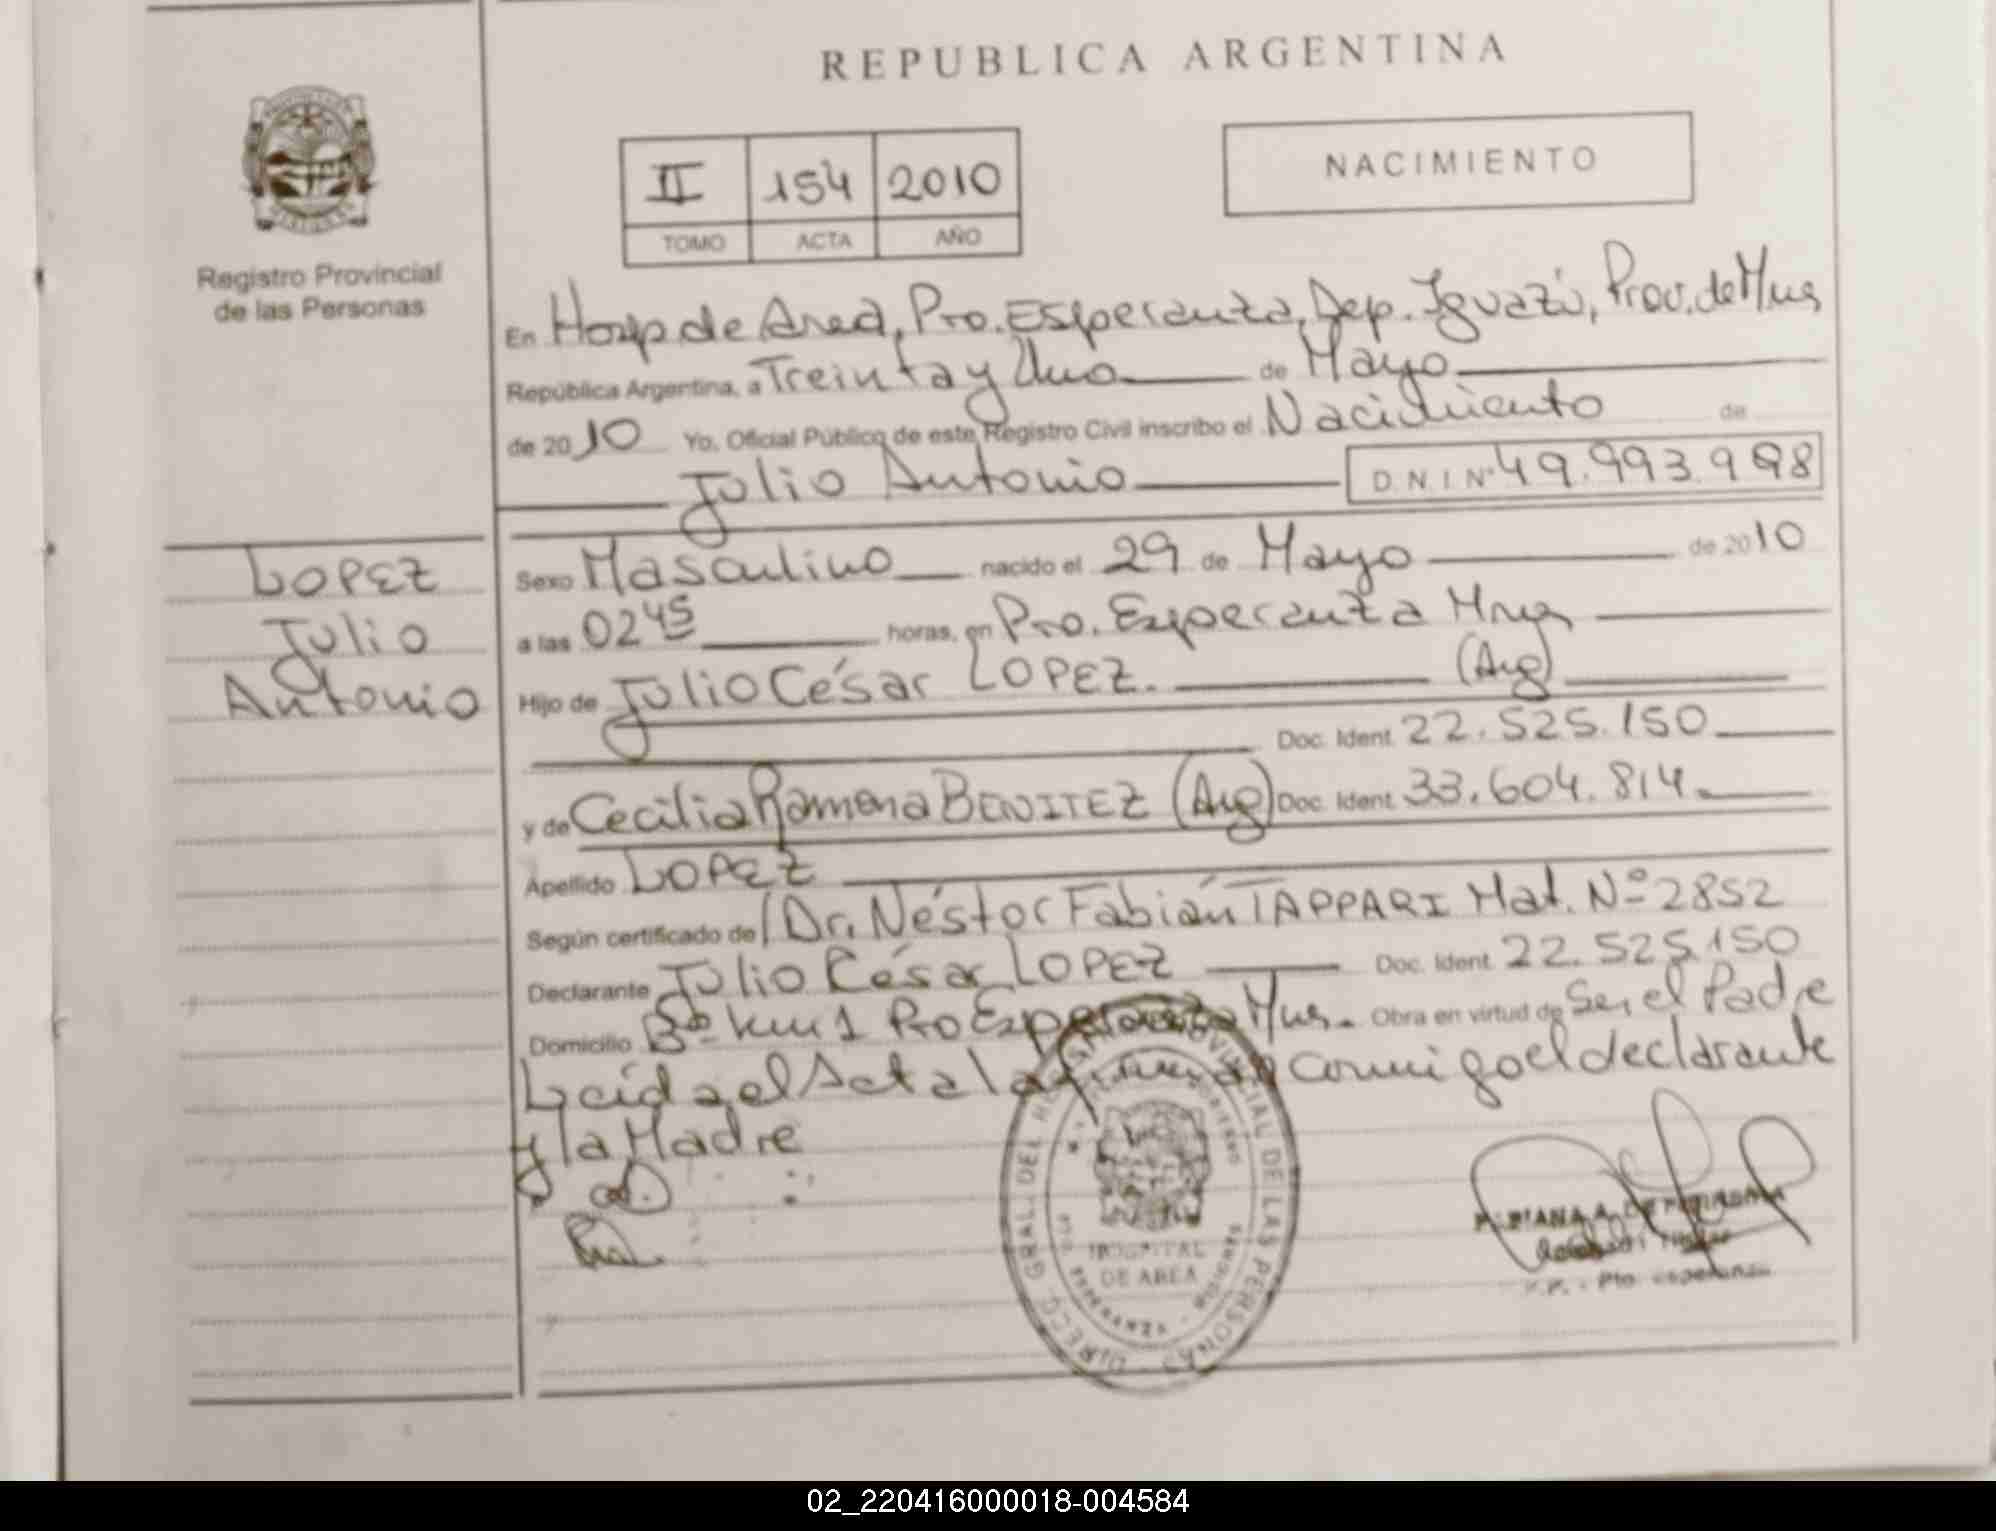 REPUBLICA ARGENTINA
II 154 2010
TOMO ACTA AÑO
NACIMIENTO
Registro Provincial
de las Personas
En Hosp de Area, Pto. Esperanza, Dep. Iguazú, Prov. de Mnes
República Argentina, a Treinta y Uno de Mayo
de 2010 Yo, Oficial Público de este Registro Civil inscribo el Nacimiento de
Julio Antonio D.N.I. Nº 49.993.998
LOPEZ
Julio
Antonio
Sexo Masculino nacido el 29 de Mayo de 2010
a las 0245 horas, en Pto. Esperanza Mnes
Hijo de Julio César LOPEZ. (Arg)
Doc. Ident. 22.525.150
y de Cecilia Ramona BENITEZ (Arg) Doc. Ident. 33.604.814
Apellido LOPEZ
Según certificado de Dr. Néstor Fabián TAPPARI Mat. Nº 2852
Declarante Julio César LOPEZ Doc. Ident. 22.525.150
Domicilio Bº km 1 Pto Esperanza Mnes. Obra en virtud de Ser el Padre
Leída el Acta la firman conmigo el declarante
y la Madre
DIRECC. GRAL. DEL REGISTRO PROVINCIAL DE LAS PERSONAS
HOSPITAL
DE AREA
ESPERANZA - MISIONES
Pto. Esperanza
02_220416000018-004584